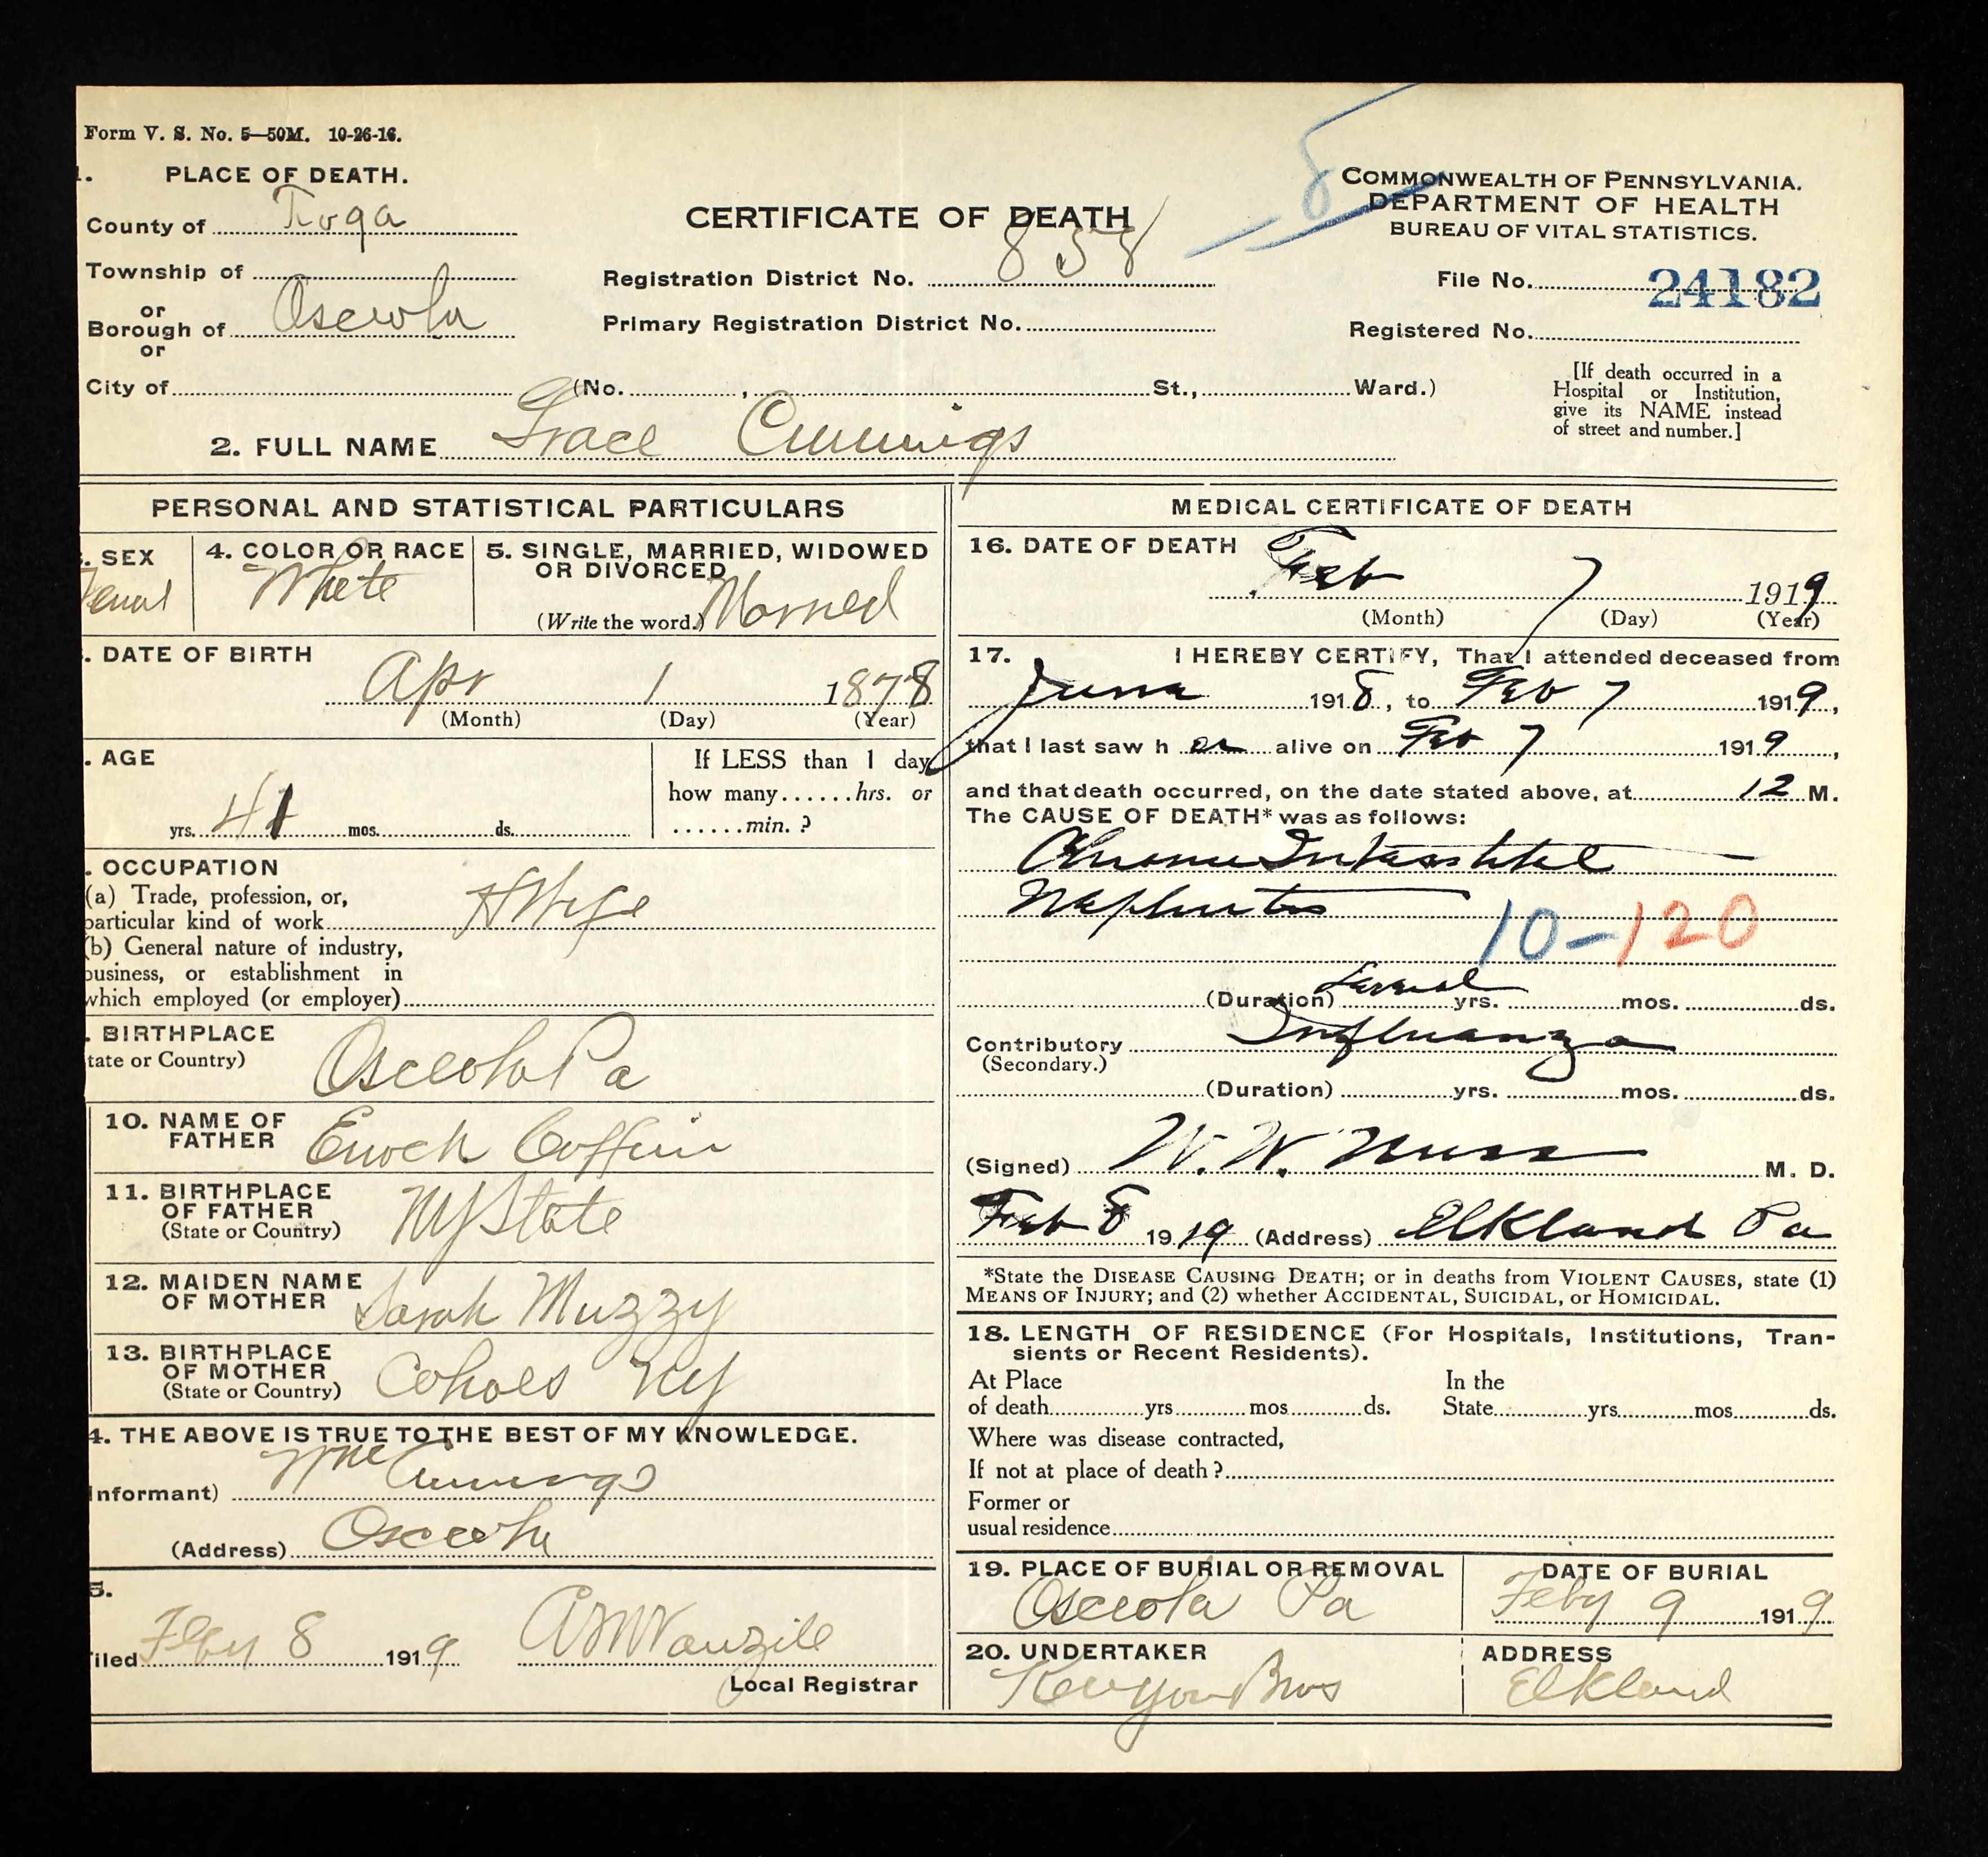 Form V. S. No. 5—50M. 10-26-16.
1. PLACE OF DEATH.
County of Tioga
Township of
or
Borough of Osceola
or
City of
CERTIFICATE OF DEATH
Registration District No. 858
Primary Registration District No.
(No. , St., Ward.)
COMMONWEALTH OF PENNSYLVANIA.
DEPARTMENT OF HEALTH
BUREAU OF VITAL STATISTICS.
File No. 24182
Registered No.
[If death occurred in a
Hospital or Institution,
give its NAME instead
of street and number.]
8
2. FULL NAME Grace Cummings
PERSONAL AND STATISTICAL PARTICULARS
. SEX
Femal
4. COLOR OR RACE
White
5. SINGLE, MARRIED, WIDOWED
OR DIVORCED
(Write the word.) Married
. DATE OF BIRTH
Apr 1 1878
(Month) (Day) (Year)
. AGE
41 yrs. mos. ds.
If LESS than 1 day
how many......hrs. or
......min. ?
. OCCUPATION
(a) Trade, profession, or,
particular kind of work HWife
(b) General nature of industry,
business, or establishment in
which employed (or employer)
. BIRTHPLACE
tate or Country) Osceola Pa
10. NAME OF
FATHER Enoch Coffin
11. BIRTHPLACE
OF FATHER
(State or Country) NY State
12. MAIDEN NAME
OF MOTHER Sarah Muzzy
13. BIRTHPLACE
OF MOTHER
(State or Country) Cohoes NY
4. THE ABOVE IS TRUE TO THE BEST OF MY KNOWLEDGE.
Informant) Wm Cummings
(Address) Osceola
5.
iled Feby 8 1919 Vanzile
Local Registrar
MEDICAL CERTIFICATE OF DEATH
16. DATE OF DEATH
Feb 7 1919
(Month) (Day) (Year)
17. I HEREBY CERTIFY, That I attended deceased from
June 1918, to Feb 7 1919,
that I last saw her alive on Feb 7 1919,
and that death occurred, on the date stated above, at 12 M.
The CAUSE OF DEATH* was as follows:
Chronic Interstitial
Nephritis
10-120
(Duration) Several yrs. mos. ds.
Contributory Influenza
(Secondary.)
(Duration) yrs. mos. ds.
(Signed) W. W. M. D.
Feb 8 1919 (Address) Elkland Pa
*State the DISEASE CAUSING DEATH; or in deaths from VIOLENT CAUSES, state (1)
MEANS OF INJURY; and (2) whether ACCIDENTAL, SUICIDAL, or HOMICIDAL.
18. LENGTH OF RESIDENCE (For Hospitals, Institutions, Tran-
sients or Recent Residents).
At Place In the
of death yrs mos ds. State yrs mos ds.
Where was disease contracted,
If not at place of death?
Former or
usual residence
19. PLACE OF BURIAL OR REMOVAL
Osceola Pa
DATE OF BURIAL
Feby 9 1919
20. UNDERTAKER
Kenyon Bros
ADDRESS
Elkland